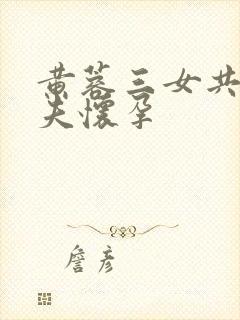 黄蓉三女共
夫怀孕
詹彦